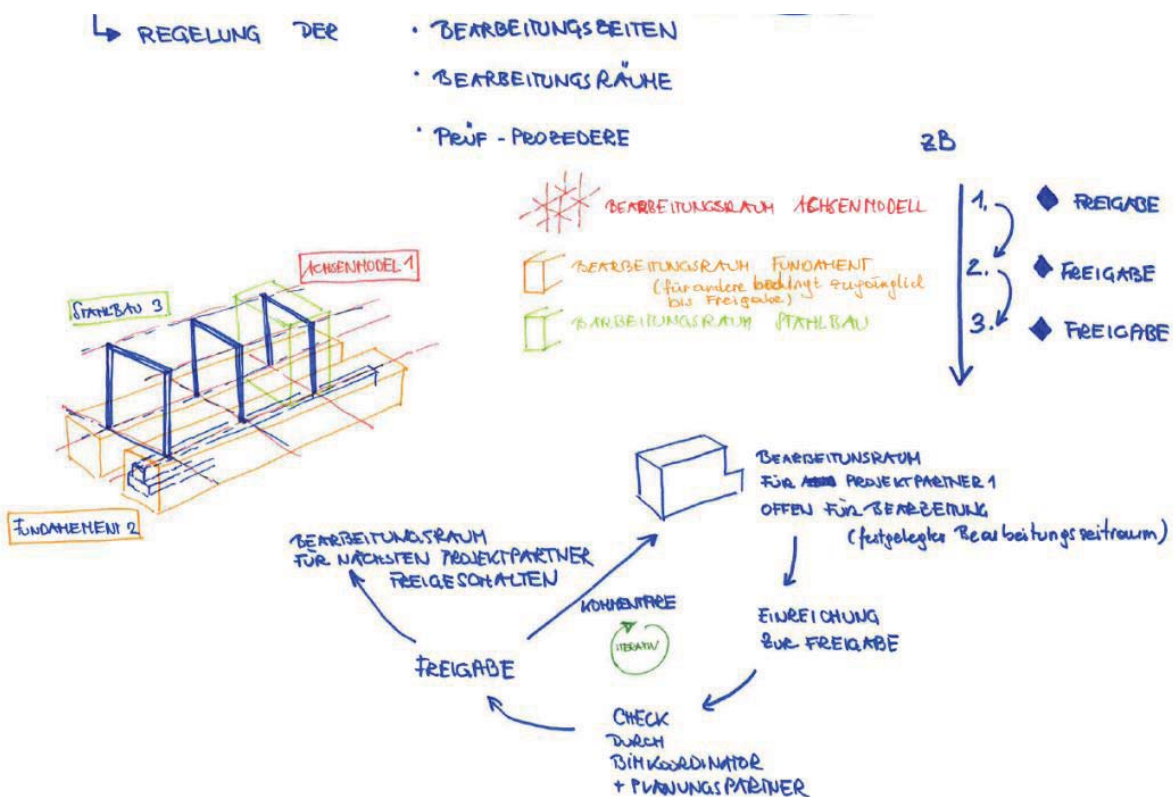 ↳ REGELUNG DER
· BEARBEITUNGSZEITEN
· BEARBEITUNGSRÄUME
· PRÜF - PROZEDERE
ZB
BEARBEITUNGSRAUM ACHSENMODELL
BEARBEITUNGSRAUM FUNDAMENT
(für andere bedingt zugänglich
bis Freigabe)
BEARBEITUNGSRAUM STAHLBAU
1. ◆ FREIGABE
2. ◆ FREIGABE
3. ◆ FREIGABE
ACHSENMODEL 1
STAHLBAU 3
FUNDAMEMENT 2
BEARBEITUNSRAUM
FÜR PROJEKTPARTNER 1
OFFEN FÜR BEARBEITUNG
(festgelegter Bearbeitungszeitraum)
EINREICHUNG
ZUR FREIGABE
CHECK
DURCH
BIM KOORDINATOR
+ PLANUNGSPARTNER
FREIGABE
KOMMENTARE
ITERATIV
BEARBEITUNGSRAUM
FÜR NÄCHSTEN PROJEKTPARTNER
FREIGESCHALTEN